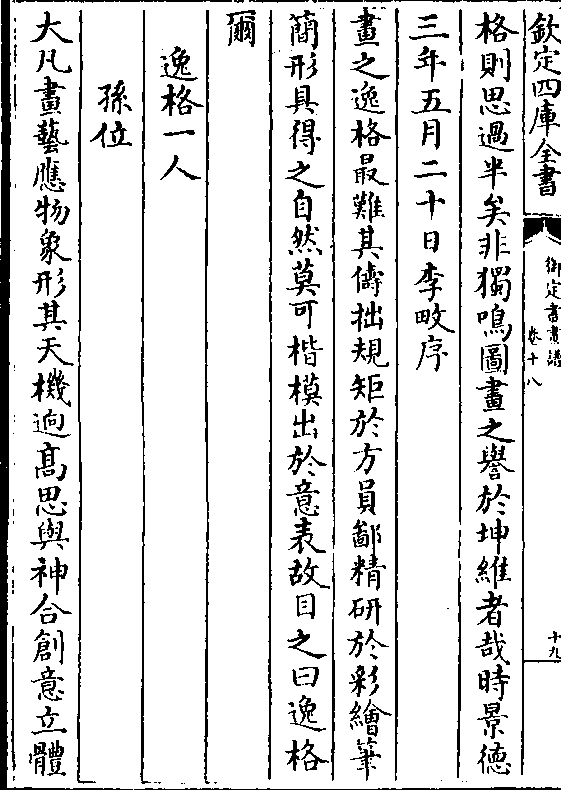 欽定四庫全書
御定書畫譜
卷十八
十九
格則思過半矣非獨鳴圖畫之譽於坤維者哉時景德
三年五月二十日李畋序
畫之逸格最難其儔拙規矩於方員鄙精研於彩繪筆
簡形具得之自然莫可楷模出於意表故目之曰逸格
爾
逸格一人
孫位
大凡畫藝應物象形其天機逈髙思與神合創意立體